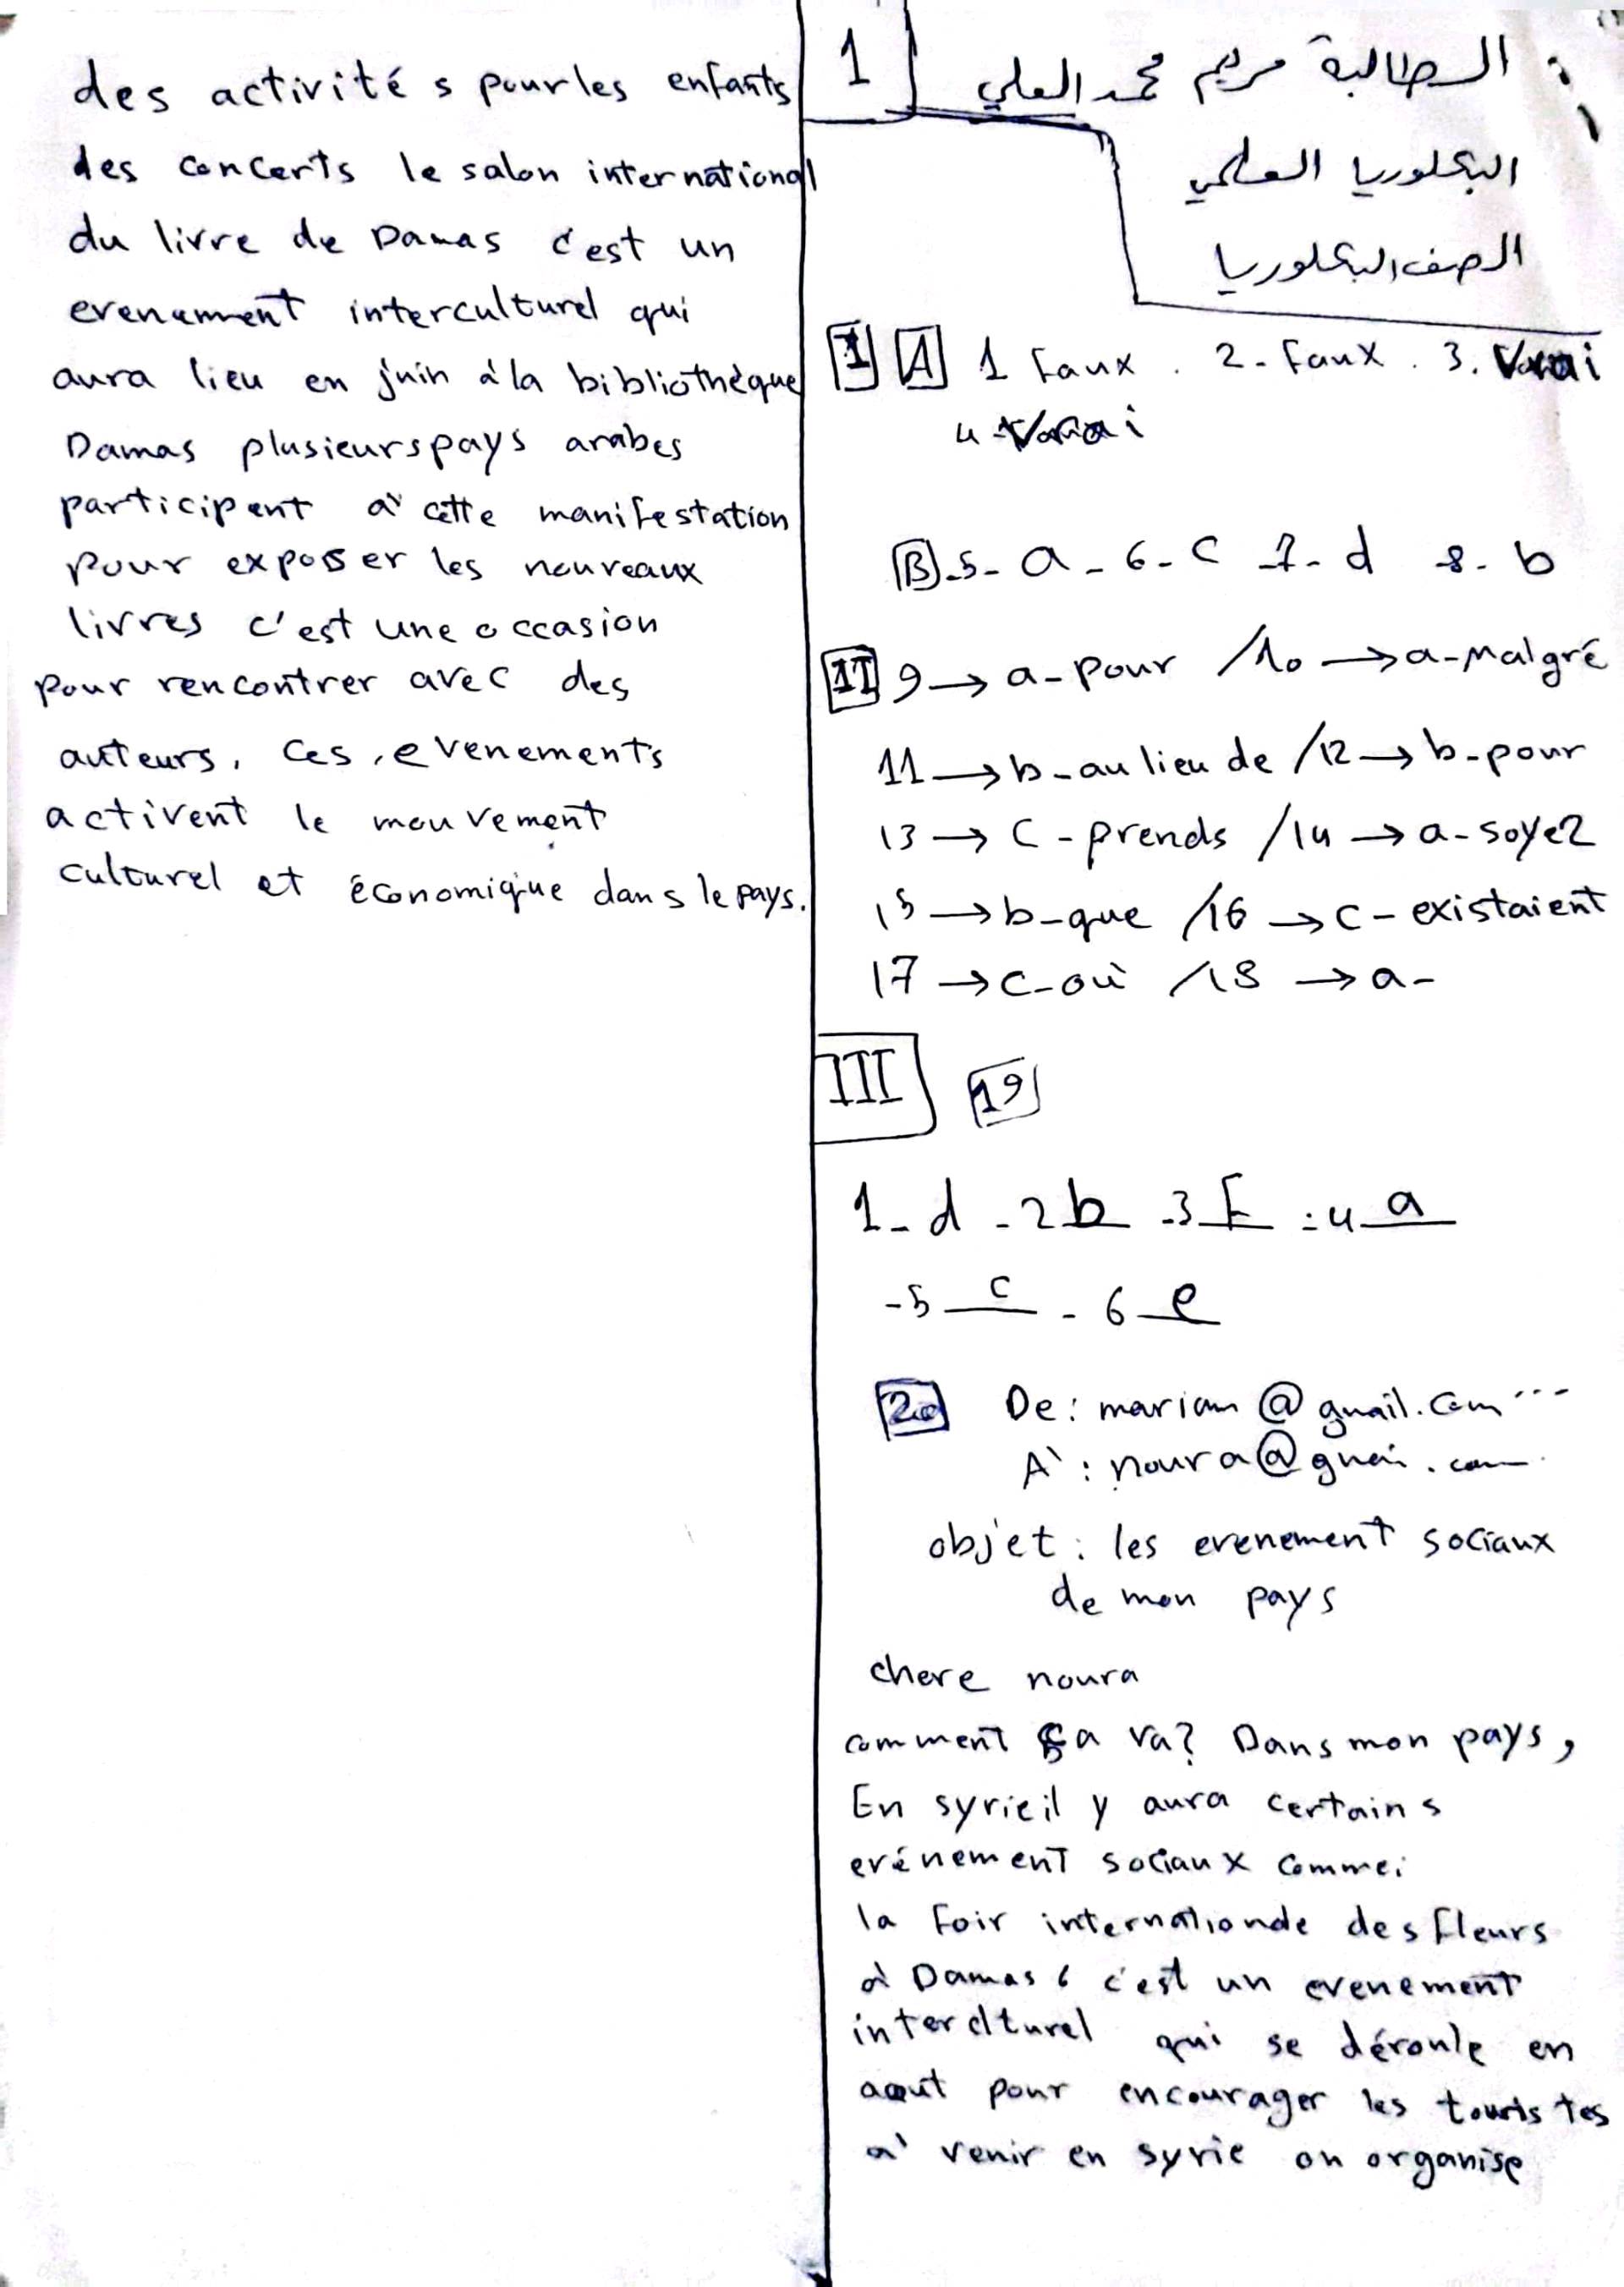 1
الطالبة مريم محمد العلي
البكلوريا العلمي
الصف البكلوريا
I A 1 Faux . 2- Faux . 3. Vrai
4- Vrai
B -5- a - 6- c -7- d -8- b
II 9 → a- pour / 10 → a- Malgré
11 → b- au lieu de / 12 → b- pour
13 → c - prends / 14 → a- soyez
15 → b- que / 16 → c- existaient
17 → c- où / 18 → a-
III 19
1- d - 2 b - 3 F - 4 a
- 5 c - 6 e
20 De : mariam @ gmail. com ...
A` : noura@ gmai . com
objet : les evenement sociaux
de mon pays
chere noura
comment ça va? Dans mon pays,
En syrie il y aura certains
evénement sociaux comme:
la Foir internationde des fleurs
à Damas c'est un evenement
interclturel qui se déroule en
aout pour encourager les touristes
à venir en syrie on organise
des activités pour les enfants
des concerts le salon international
du livre de Damas c'est un
evenement interculturel qui
aura lieu en juin à la bibliothèque
Damas plusieurs pays arabes
participent à cette manifestation
pour exposer les nouveaux
livres c'est une occasion
pour rencontrer avec des
auteurs, ces evenements
activent le mouvement
culturel et économique dans le pays.